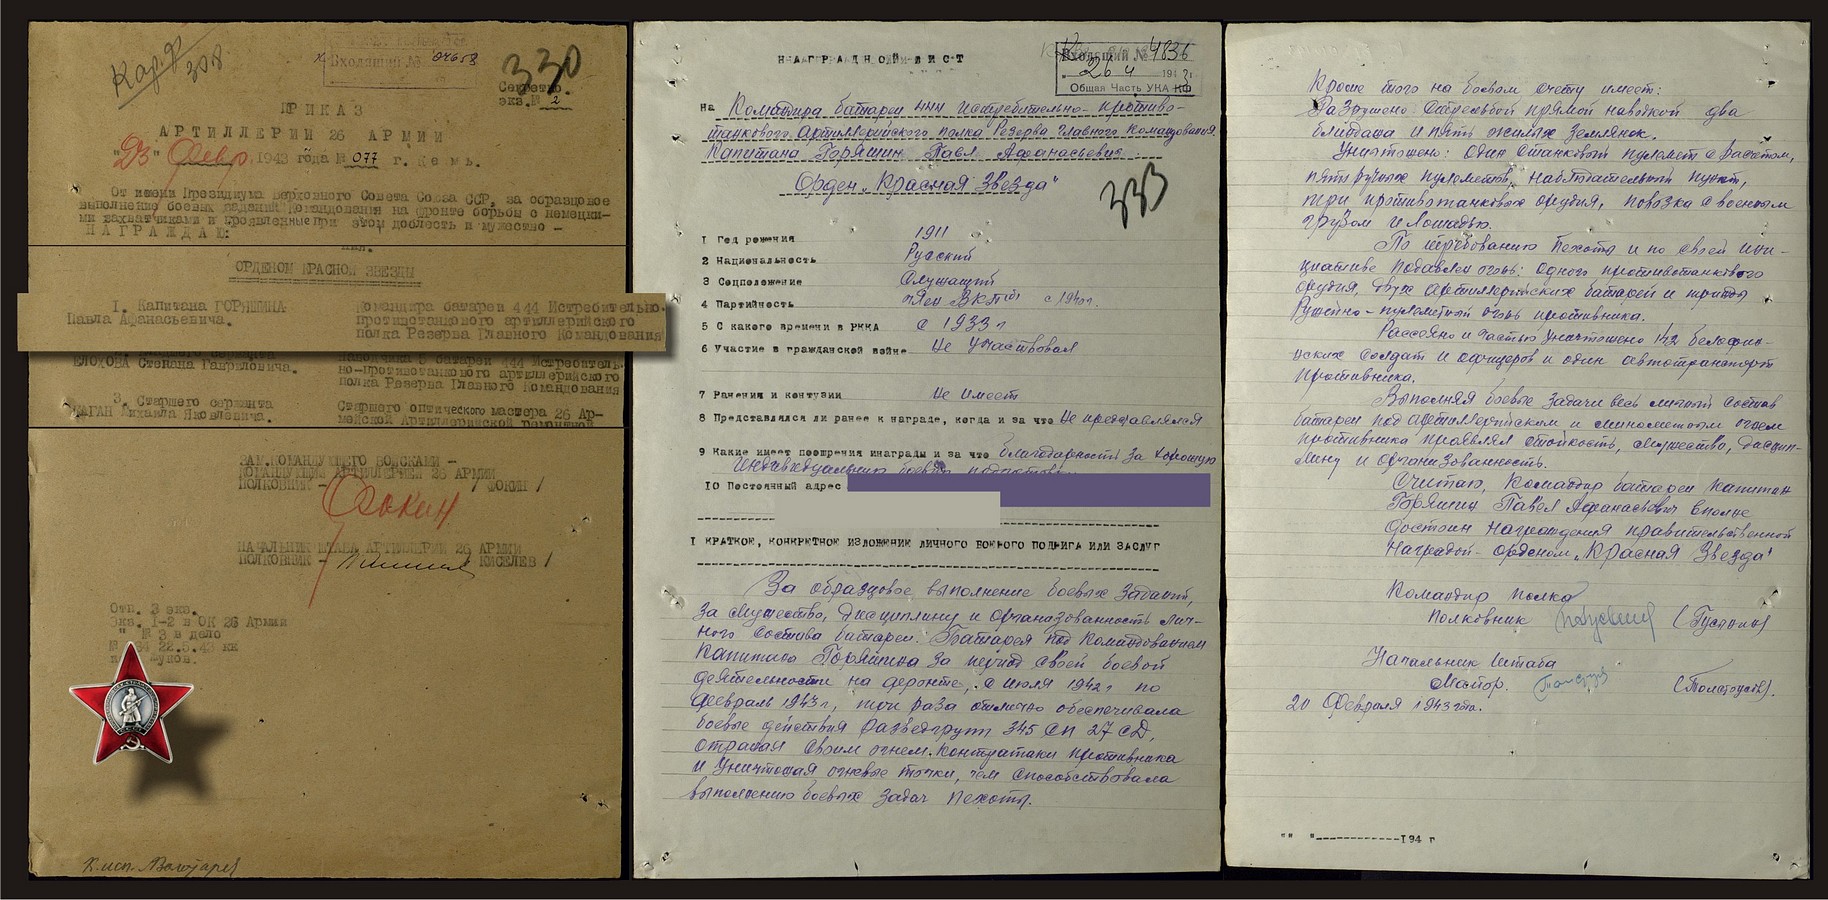 Кар.
308
Входящий № 04658
330
Секретно.
экз.№ 2
ПРИКАЗ
АРТИЛЛЕРИИ 26 АРМИИ
"23" Февр. 1943 года № 077 г. Кемь.
От имени Президиума Верховного Совета Союза ССР, за образцовое
выполнение боевых заданий Командования на фронте борьбы с немецки-
ми захватчиками и проявленные при этом доблесть и мужество -
НАГРАЖДАЮ:
ОРДЕНОМ КРАСНОЙ ЗВЕЗДЫ
1. Капитана ГОРЯШИНА
Павла Афанасьевича.
Командира батареи 444 Истребительно-
противотанкового артиллерийского
полка Резерва Главного Командования
ЕЛОХОВА Степана Гавриловича.
батареи 444 Истребитель-
но-противотанкового артиллерийского
полка Резерва Главного Командования
3. Старшего сержанта
КАГАН Михаила Яковлевича.
Старшего оптического мастера 26 Ар-
мейской Артиллерийской ремонтной
ЗАМ.КОМАНДУЮЩЕГО ВОЙСКАМИ -
КОМАНДУЮЩИЙ АРТИЛЛЕРИЕЙ 26 АРМИИ
ПОЛКОВНИК - / ФОКИН /
НАЧАЛЬНИК ШТАБА АРТИЛЛЕРИИ 26 АРМИИ
ПОЛКОВНИК - / КИСЕЛЕВ /
Отп. 3 экз.
Экз. 1-2 в ОК 26 Армии
" № 3 в дело
22.2.43
НАГРАДНОЙ ЛИСТ
Входящий № 4836
"26" 4 194
Общая Часть УКА КФ
На Командира батареи 444 истребительно-противо-
танкового артиллерийского полка Резерва Главного Командования
Капитана Горяшин Павл Афанасьевич.
Орден "Красная Звезда"
333
1 Год рожения 1911
2 Национальность Русский
3 Соцположение Служащий
4 Партийность член ВКП/б/ с 1940г.
5 С какого времени в РККА с 1933 г
6 Участие в гражданской войне Не участвовал
7 Ранения и контузии Не имеет
8 Представлялся ли ранее к награде, когда и за что Не представлялся
9 Какие имеет поощрения инаграды и за что благодарность за хорошую
индивидуальную боевую подготовку
10 Постоянный адрес
I КРАТКОЕ, КОНКРЕТНОЕ ИЗЛОЖЕНИЕ ЛИЧНОГО БОЕВОГО ПОДВИГА ИЛИ ЗАСЛУГ
За образцовое выполнение боевых заданий,
за мужество, дисциплину и организованность лич-
ного состава батареи. Батарея под командованием
Капитана Горяшина за период своей боевой
деятельности на фронте, с июля 1942г по
февраль 1943г, три раза отлично обеспечивала
боевые действия разведгрупп 345 СП 27 СД,
отражая своим огнем контратаки противника
и уничтожая огневые точки, чем способствовала
выполнению боевых задач пехоты.
Кроме того на боевом счету имеет:
Разрушено стрельбой прямой наводкой два
блиндажа и пять жилых землянок.
Уничтожено: один станковый пулемет с расчетом,
пять ручных пулеметов, наблюдательный пункт,
три противотанковых орудия, повозка с военным
грузом и лошадью.
По требованию пехоты и по своей ини-
циативе подавлен огонь: одного противотанкового
орудия, двух артиллерийских батарей и трижды
Ружейно-пулеметный огонь противника.
Рассеяно и частью уничтожено 142 белофин-
ских солдат и офицеров и один автотранспорт
противника.
Выполняя боевые задачи весь личный состав
батареи под артиллерийским и минометным огнем
противника проявлял стойкость, мужество, дисцип-
лину и организованность.
Считаю, командир батареи капитан
Горяшин Павел Афанасьевич вполне
достоин награждения правительственной
наградой - орденом "Красная Звезда"
Командир полка
Полковник
Начальник штаба
Майор.
20 февраля 1943 года.
"" "------------194 г